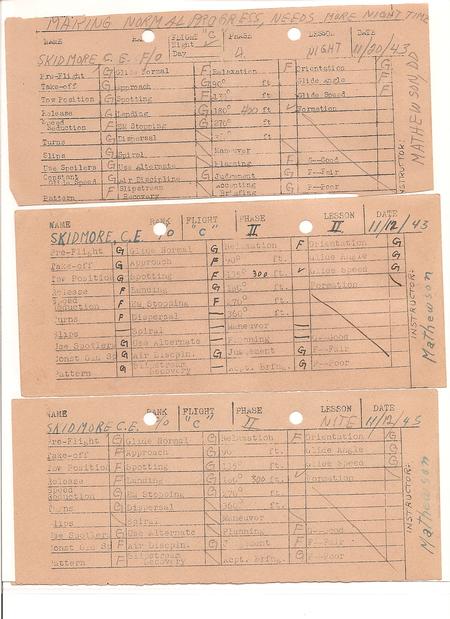 MAKING NORMAL PROGRESS, NEEDS MORE NIGHT TIME
NAME RANK FLIGHT "C" PHASE LESSON DATE
Night Day
SKIDMORE C. E. F/O 4 NIGHT 11/20/43
Pre-Flight G Glide Normal F Relaxation Orientation G
Take-off G Approach F 90° ft Glide Angle F
Tow Position G Spotting F ft Glide Speed F
Release G Landing G 180° 400 ft ✓ Formation
Speed Reduction F EM Stopping G 270° ft
Turns G Dispersal ft
Slips Spiral Maneuver
Use Spoilers G Use Alternate Planning F G--Good
Constant Glide Speed G Air Discipline G Judgement G F--Fair
Pattern F Slipstream Recovery Accepting Briefing G P--Poor
INSTRUCTOR: MATHEWSON DD
NAME RANK FLIGHT PHASE LESSON DATE
SKIDMORE, C.E. F/O "C" II II 11/12/43
Pre-Flight G Glide Normal G Relaxation F Orientation G
Take-off G Approach F 90° ft. Glide Angle G
Tow Position G Spotting F 135° 300 ft. ✓ Glide Speed G
Release F Landing G 180° ft. Formation
Speed Reduction F EM Stopping F 270° ft.
Turns F Dispersal 360° ft.
Slips Spiral Maneuver
Use Spoilers G Use Alternate Planning G--Good
Const Glm Sp G Air Discipln. G Judgement G F--Fair
Pattern G Slipstream Recovery Acpt. Brfng. G P--Poor
INSTRUCTOR: Mathewson
NAME RANK FLIGHT PHASE LESSON DATE
SKIDMORE C.E. F/O "C" II NITE 11/12/43
Pre-Flight G Glide Normal G Relaxation F Orientation G
Take-off F Approach G 90° ft. Glide Angle G
Tow Position G Spotting F 135° ft. Glide Speed G
Release F Landing G 180° 300 ft. ✓ Formation
Speed Reduction G EM Stopping G 270° ft.
Turns G Dispersal 360° ft.
Slips Spiral Maneuver
Use Spoilers G Use Alternate Planning F G--Good
Const Glm Sp F Air Discipln. G F F--Fair
Pattern F Slipstream Recovery Acpt. Brfng. G P--Poor
INSTRUCTOR: Mathewson